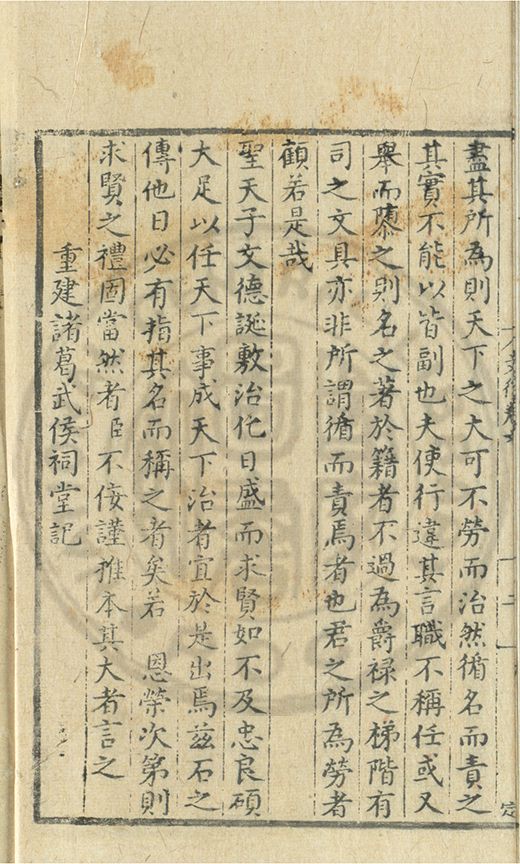 盡其所為則天下之大可不勞而治然循名而責之
其實不能以皆副也夫使行違其言職不稱任或又
舉而隳之則名之著於籍者不過為爵祿之梯階有
司之文具亦非所謂循而責焉者也君之所為勞者
顧若是哉
聖天子文德誕敷治化日盛而求賢如不及忠良碩
大足以任天下事成天下治者宜於是出焉茲石之
傳他日必有指其名而稱之者矣若　恩榮次第則
求賢之禮固當然者臣不佞謹推本其大者言之
重建諸葛武侯祠堂記